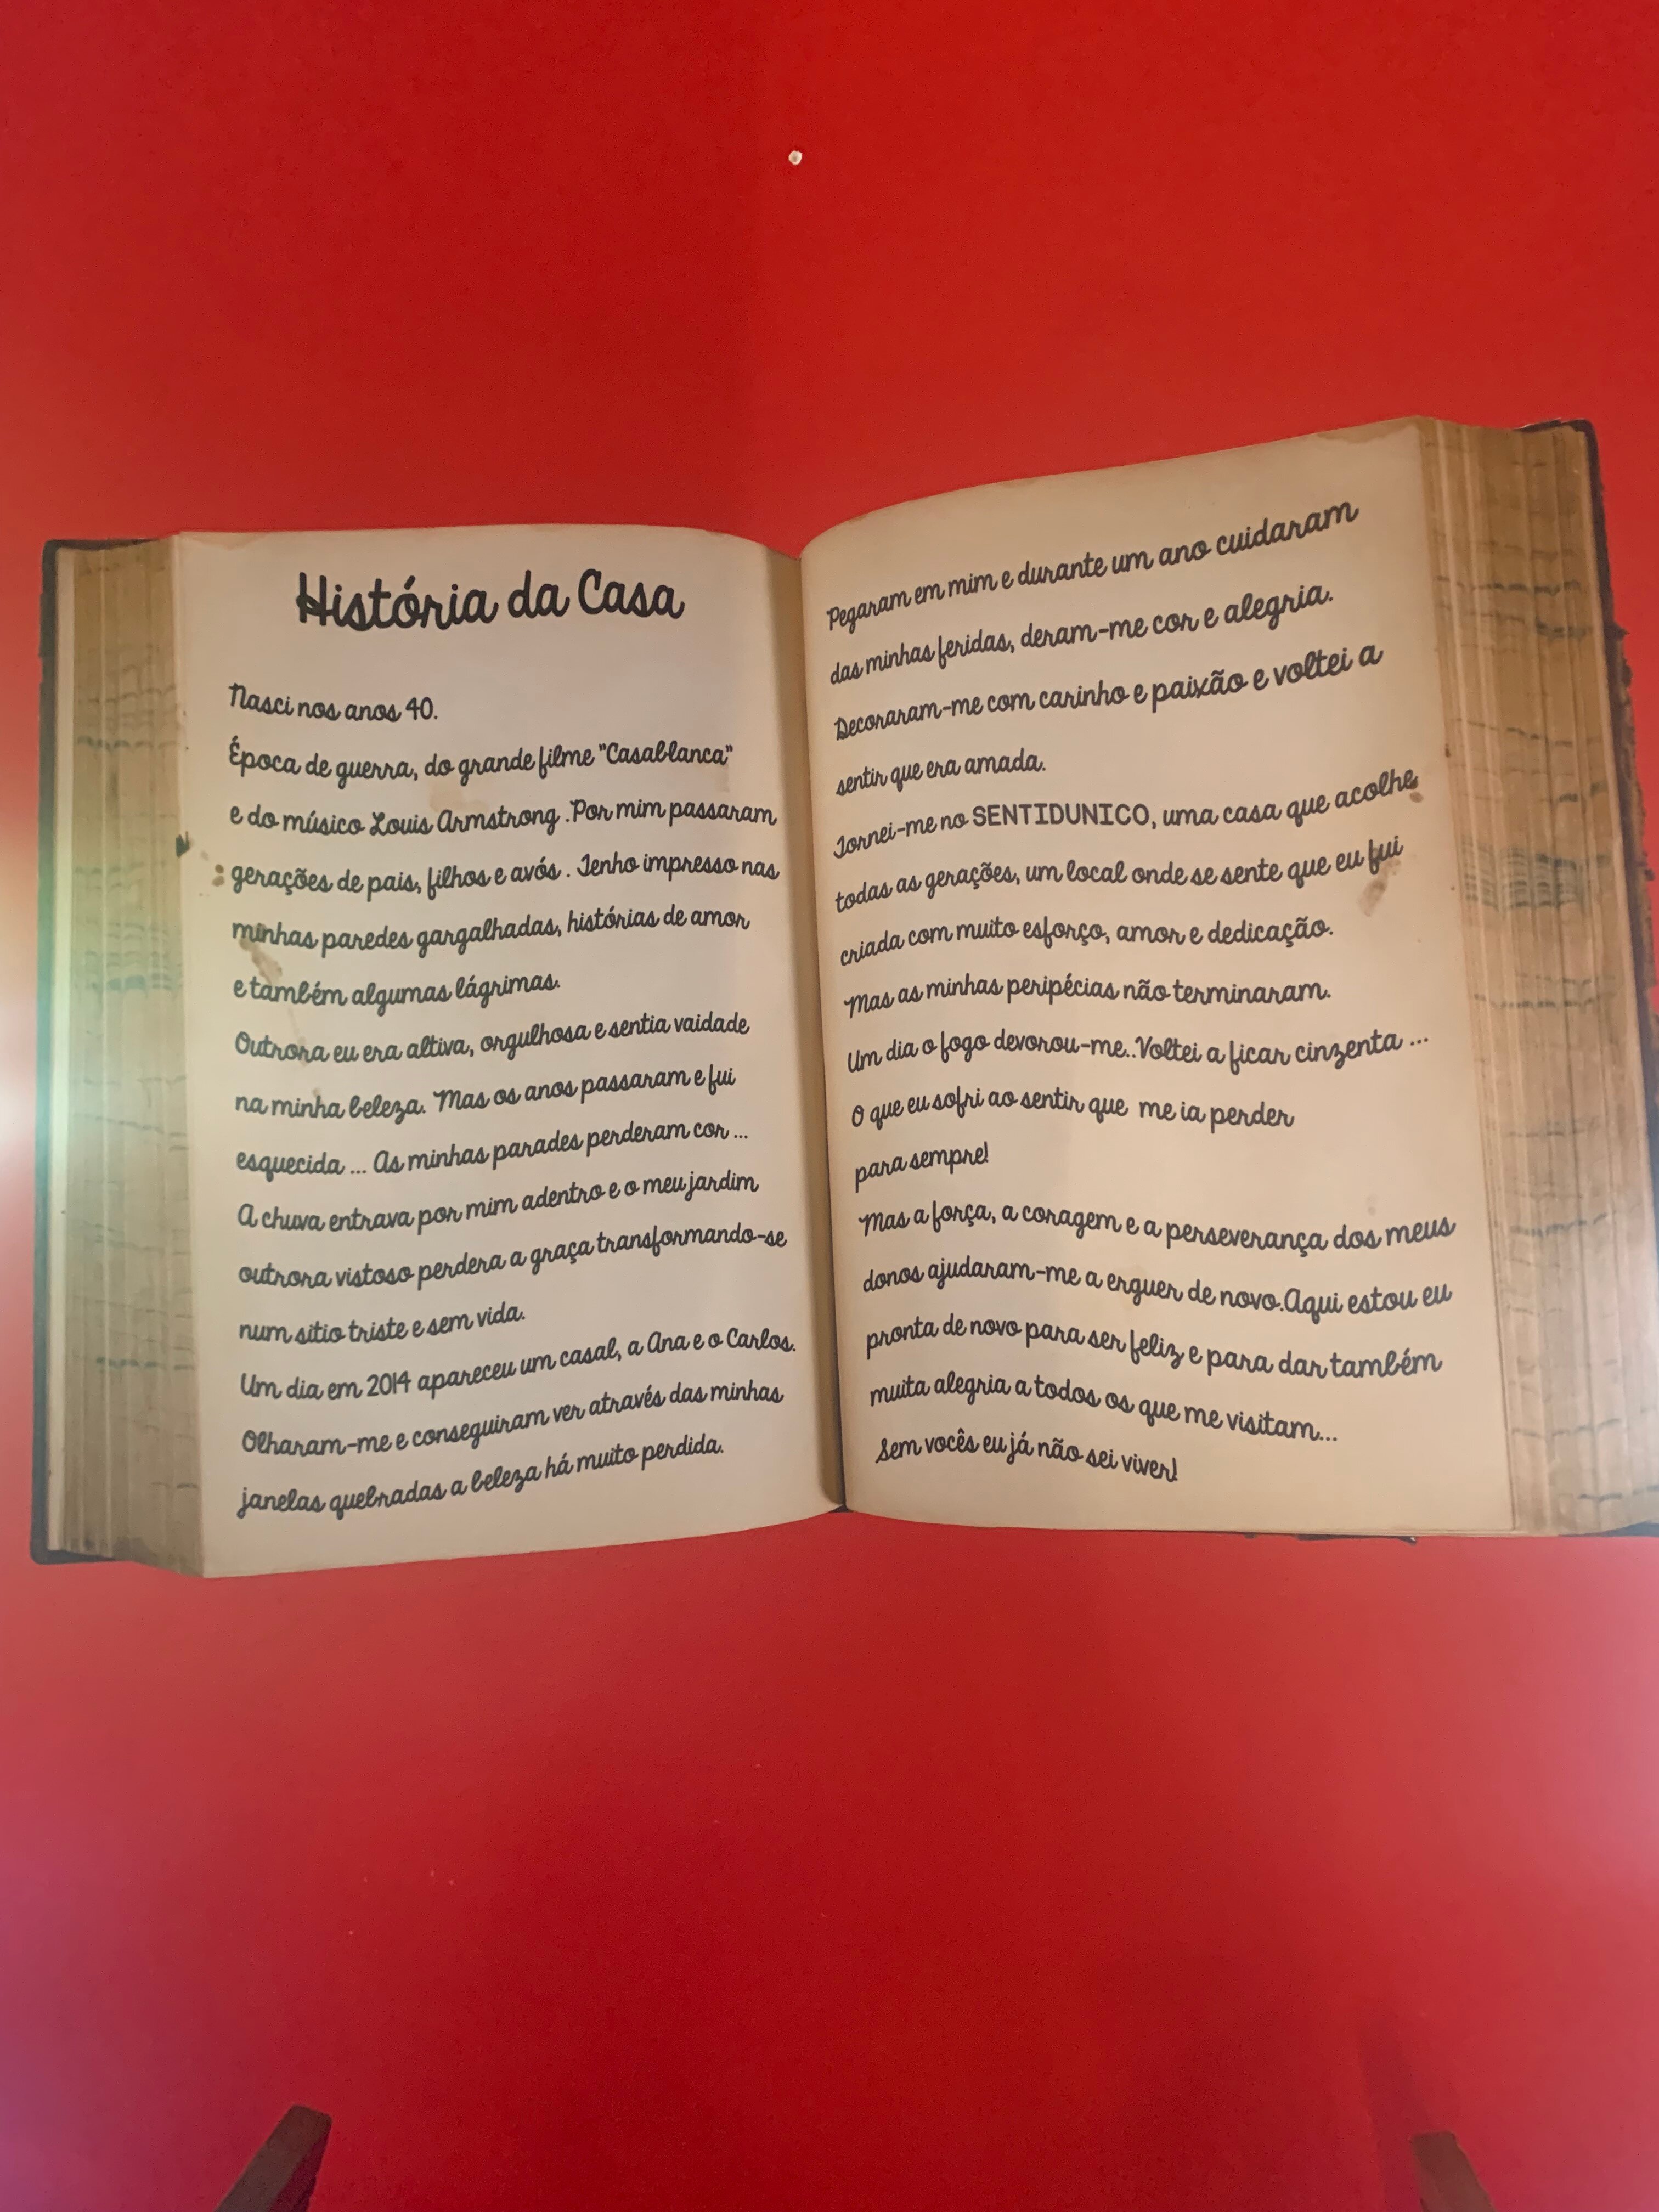 História da Casa
Nasci nos anos 40.
Época de guerra, do grande filme "Casablanca"
e do músico Louis Armstrong .Por mim passaram
gerações de pais, filhos e avós . Tenho impresso nas
minhas paredes gargalhadas, histórias de amor
e também algumas lágrimas.
Outrora eu era altiva, orgulhosa e sentia vaidade
na minha beleza. Mas os anos passaram e fui
esquecida ... As minhas parades perderam cor ...
A chuva entrava por mim adentro e o meu jardim
outrora vistoso perdera a graça transformando-se
num sitio triste e sem vida.
Um dia em 2014 apareceu um casal, a Ana e o Carlos.
Olharam-me e conseguiram ver através das minhas
janelas quebradas a beleza há muito perdida.
Pegaram em mim e durante um ano cuidaram
das minhas feridas, deram-me cor e alegria.
Decoraram-me com carinho e paixão e voltei a
sentir que era amada.
Tornei-me no SENTIDUNICO, uma casa que acolhe
todas as gerações, um local onde se sente que eu fui
criada com muito esforço, amor e dedicação.
Mas as minhas peripécias não terminaram.
Um dia o fogo devorou-me..Voltei a ficar cinzenta ...
O que eu sofri ao sentir que me ia perder
para sempre!
Mas a força, a coragem e a perseverança dos meus
donos ajudaram-me a erguer de novo.Aqui estou eu
pronta de novo para ser feliz e para dar também
muita alegria a todos os que me visitam...
Sem vocês eu já não sei viver!